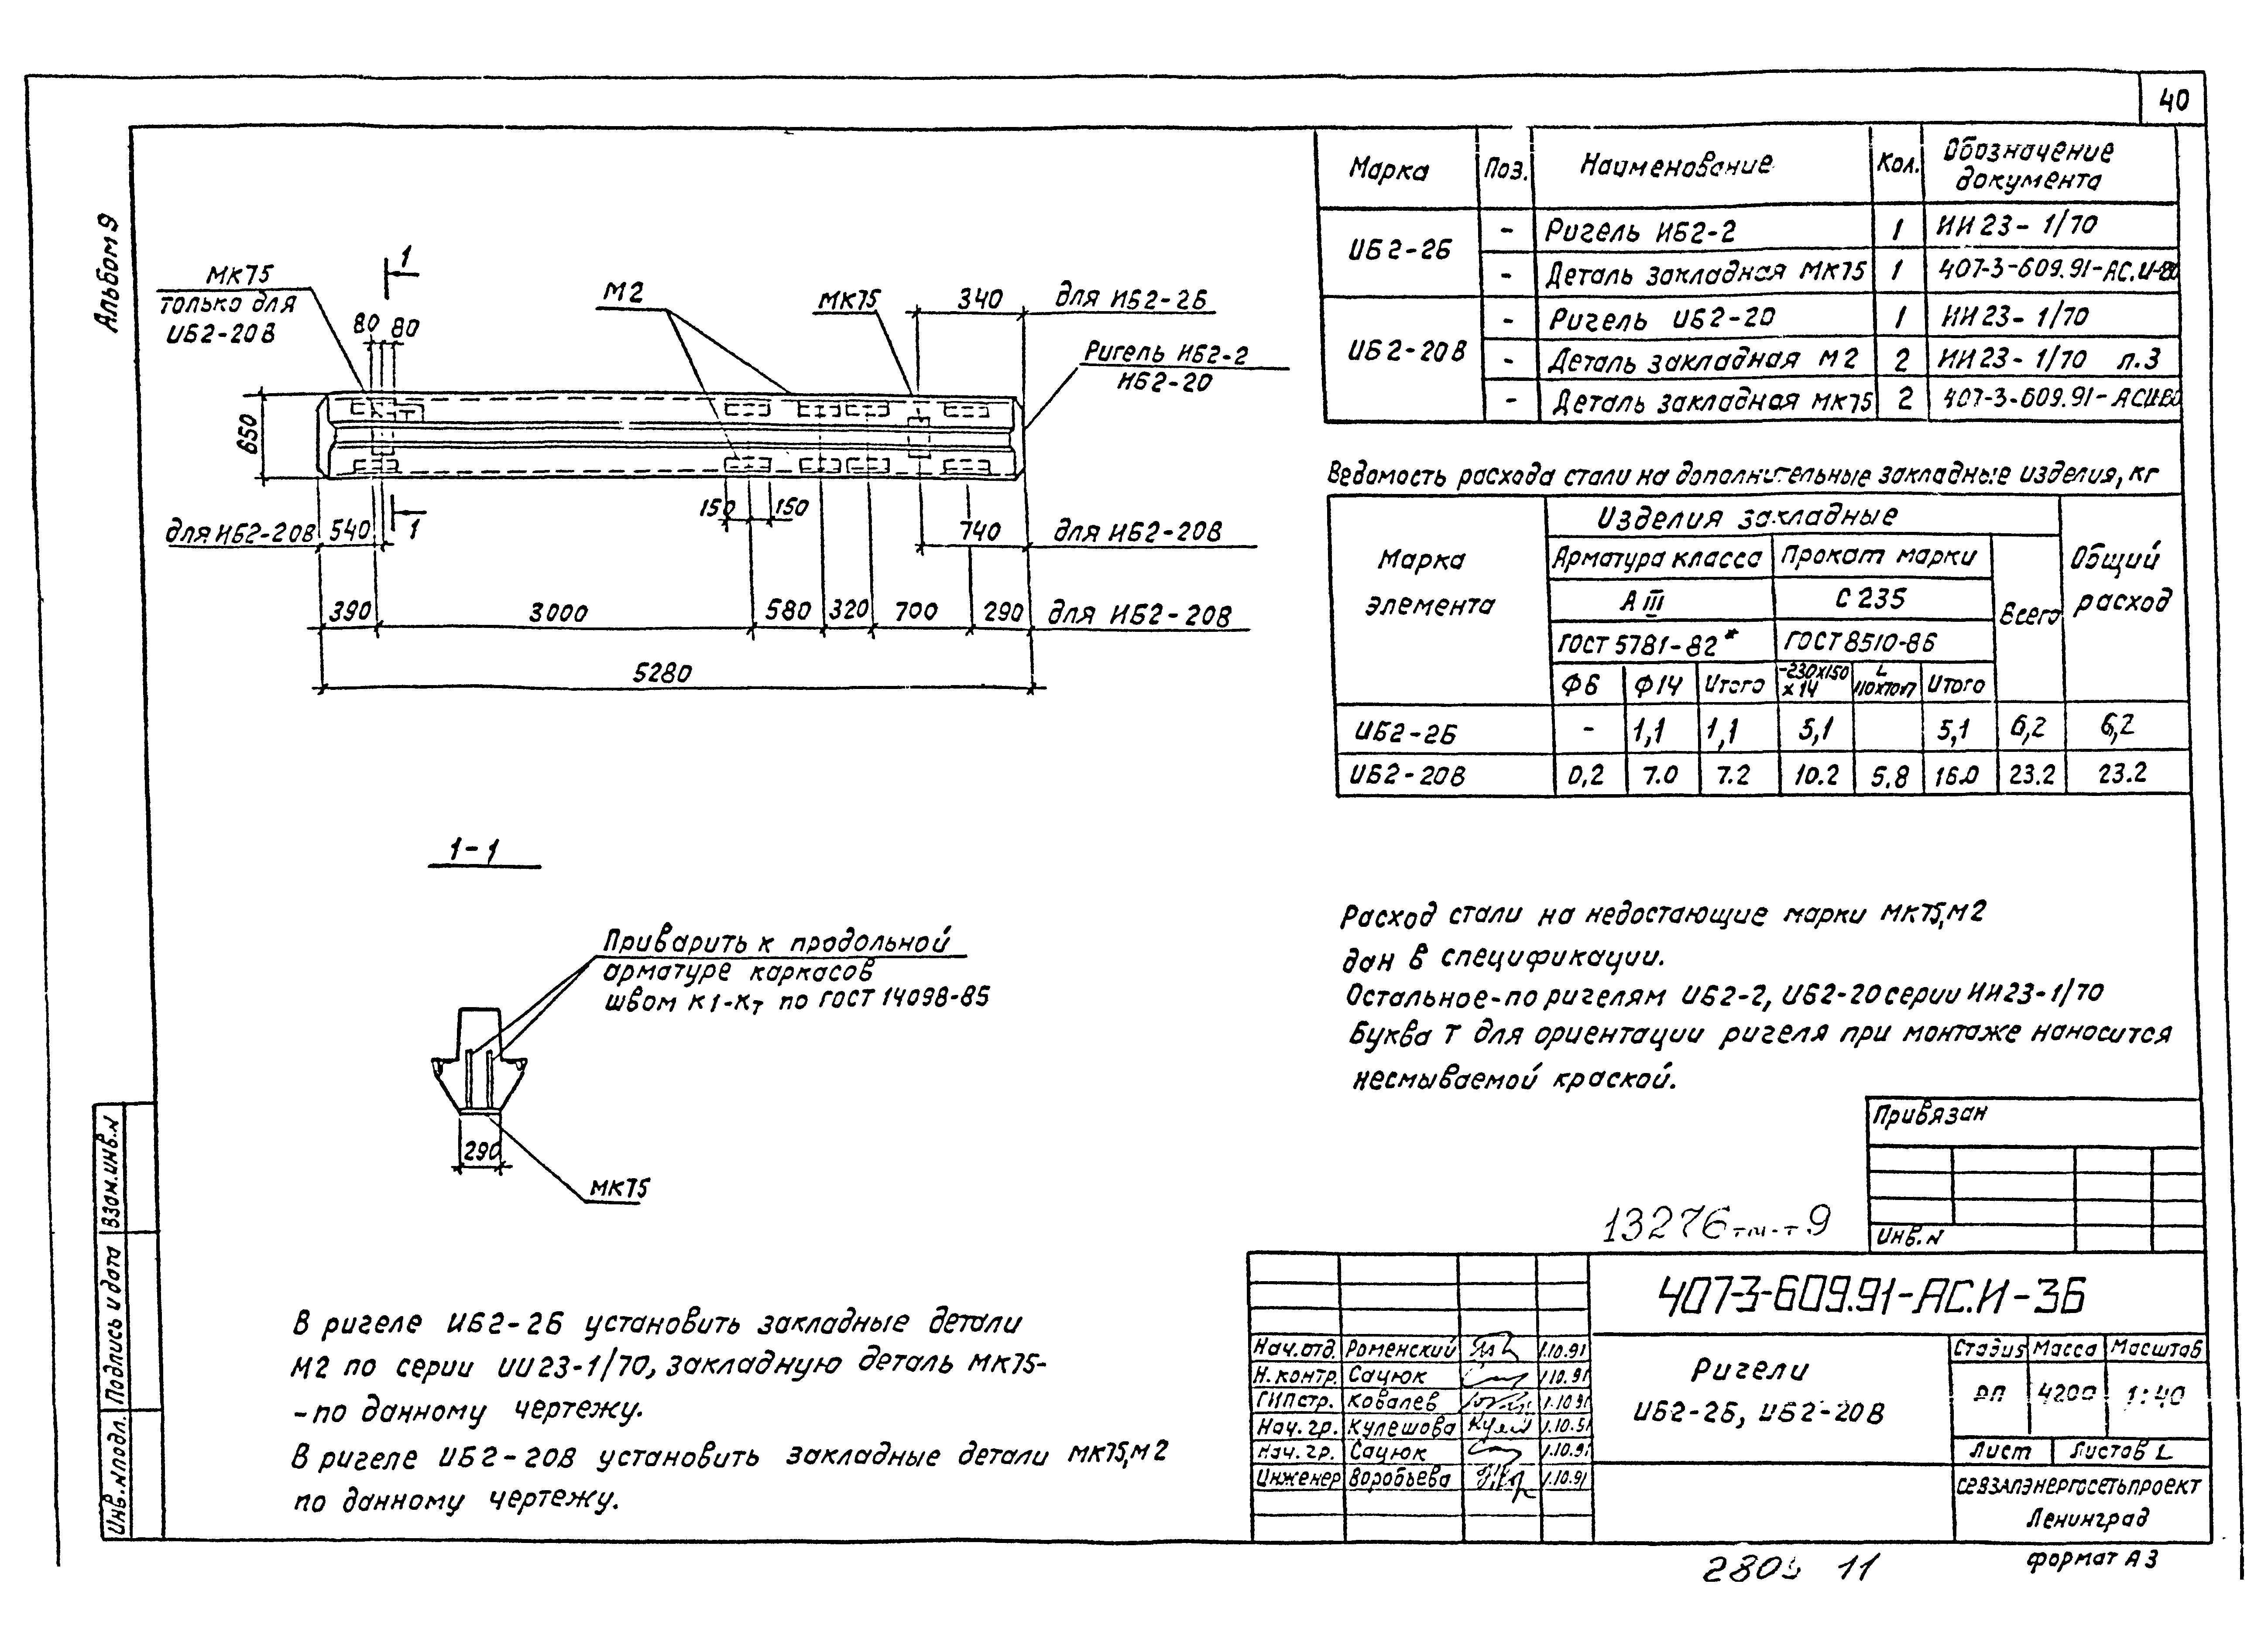 40
Альбом 9
МК75
только для
ИБ2-20В
1
80
80
М2
МК75
340
для ИБ2-2Б
Ригель ИБ2-2
ИБ2-20
650
для ИБ2-20В
540
1
150
150
740
для ИБ2-20В
390
3000
580
320
700
290
для ИБ2-20В
5280
1-1
Приварить к продольной
арматуре каркасов
швом К1-Кт по ГОСТ 14098-85
290
МК75
В ригеле ИБ2-2Б установить закладные детали
М2 по серии ИИ23-1/70, закладную деталь МК75-
-по данному чертежу.
В ригеле ИБ2-20В установить закладные детали МК75,М2
по данному чертежу.
Марка Поз. Наименование Кол. Обозначение документа
ИБ2-2Б - Ригель ИБ2-2 1 ИИ23-1/70
- Деталь закладная МК75 1 407-3-609.91-АС.И-80
ИБ2-20В - Ригель ИБ2-20 1 ИИ23-1/70
- Деталь закладная М2 2 ИИ23-1/70 л.3
- Деталь закладная МК75 2 407-3-609.91-АСИ80
Ведомость расхода стали на дополнительные закладные изделия, кг
Марка элемента
Изделия закладные
Общий расход
Арматура класса Прокат марки Всего
А III С 235
ГОСТ 5781-82* ГОСТ 8510-86
Ф6 Ф14 Итого -230х150х14 L 110х70х7 Итого
ИБ2-2Б - 1,1 1,1 5,1 5,1 6,2 6,2
ИБ2-20В 0,2 7.0 7.2 10.2 5.8 16.0 23.2 23.2
Расход стали на недостающие марки МК75,М2
дан в спецификации.
Остальное-по ригелям ИБ2-2, ИБ2-20 серии ИИ23-1/70
Буква Т для ориентации ригеля при монтаже наносится
несмываемой краской.
Привязан
Инв.N
13276тм-т9
407-3-609.91-АС.И-36
Нач.отд. Роменский 1.10.91
Н.контр. Сацюк 1.10.91
ГИПстр. Ковалев 1.10.91
Нач.гр. Кулешова 1.10.91
Нач.гр. Сацюк 1.10.91
Инженер Воробьева 1.10.91
Ригели
ИБ2-2Б, ИБ2-20В
Стадия Масса Масштаб
РП 4200 1:40
Лист Листов 1
Севзапэнергосетьпроект
Ленинград
формат А3
11
Взам.инв.N
Подпись и дата
Инв.Nподл.